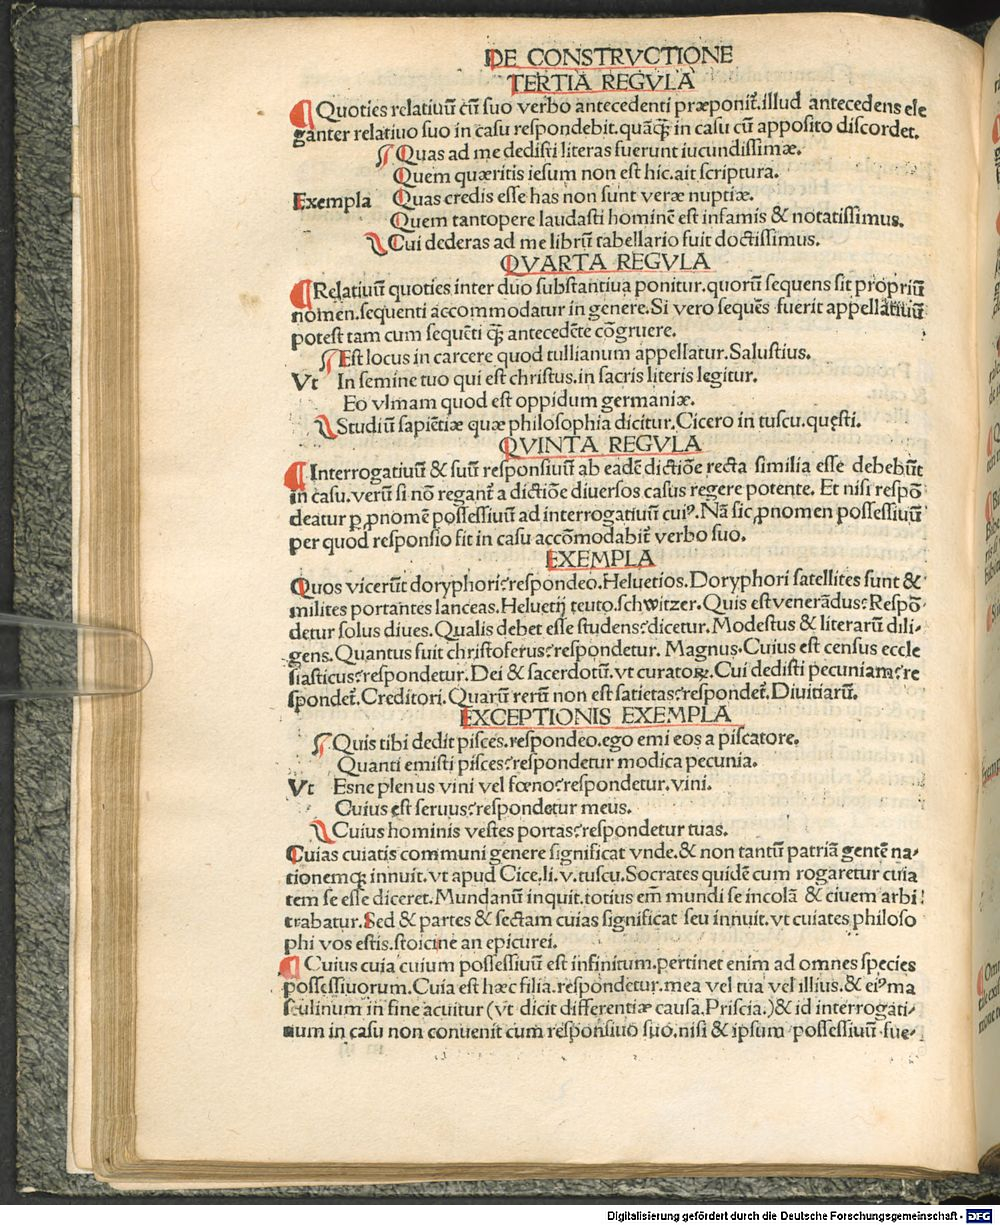 DE CONSTRVCTIONE
TERTIA REGVLA
¶ Quoties relatiuū cū suo verbo antecedenti præponit̃.illud antecedens ele
ganter relatiuo suo in casu respondebit.quāq̄ in casu cū apposito discordet.
¶ Quas ad me dedisti literas fuerunt iucundissimæ.
Quem quæritis iesum non est hic.ait scriptura.
Exempla Quas credis esse has non sunt veræ nuptiæ.
Quem tantopere laudasti hominē est infamis & notatissimus.
Cui dederas ad me librū tabellario fuit doctissimus.
QVARTA REGVLA
¶ Relatiuū quoties inter duo substantiua ponitur.quorū sequens sit propriū
nomen.sequenti accommodatur in genere.Si vero sequēs fuerit appellatiuū
potest tam cum sequēti q̄ antecedēte cōgruere.
¶ Est locus in carcere quod tullianum appellatur.Salustius.
Vt In semine tuo qui est christus.in sacris literis legitur.
Eo vlmam quod est oppidum germaniæ.
Studiū sapiētiæ quæ philosophia dicitur.Cicero in tuscu.quęsti.
QVINTA REGVLA
¶ Interrogatiuū & suū responsiuū ab eadē dictiōe recta similia esse debebūt
in casu.verū si nō regant̃ a dictiōe diuersos casus regere potente. Et nisi respō
deatur ꝑ ꝓnomē possessiuū ad interrogatiuū cuiꝰ.Nā sic ꝓnomen possessiuū
per quod responsio fit in casu accōmodabit̃ verbo suo.
EXEMPLA
Quos vicerūt doryphori?respondeo.Heluetios.Doryphori satellites sunt &
milites portantes lanceas.Heluetij teuto.schwitzer.Quis est venerādus?Respō
detur solus diues.Qualis debet esse studens?dicetur.Modestus & literarū dili-
gens.Quantus fuit christoferus?respondetur. Magnus.Cuius est census eccle
siasticus?respondetur. Dei & sacerdotū.vt curatoꝝ.Cui dedisti pecuniam?re
spondet̃.Creditori.Quarū rerū non est satietas?respondet̃.Diuitiarū.
EXCEPTIONIS EXEMPLA
¶ Quis tibi dedit pisces.respondeo.ego emi eos a piscatore.
Quanti emisti pisces?respondetur modica pecunia.
Vt Esne plenus vini vel fœno?respondetur.vini.
Cuius est seruus?respondetur meus.
Cuius hominis vestes portas?respondetur tuas.
Cuias cuiatis communi genere significat vnde.& non tantū patriā gentē na-
tionemq; innuit.vt apud Cice.li.v.tuscu.Socrates quidē cum rogaretur cuia
tem se esse diceret.Mundanū inquit.totius em̄ mundi se incolā & ciuem arbi
trabatur.Sed & partes & sectam cuias significat seu innuit.vt cuiates philoso
phi vos estis.stoicine an epicurei.
¶ Cuius cuia cuium possessiuū est infinitum.pertinet enim ad omnes species
possessiuorum.Cuia est hæc filia.respondetur.mea vel tua vel illius.& eiꝰ ma
sculinum in fine acuitur (vt dicit differentiæ causa.Priscia.)& id interrogati-
uum in casu non conuenit cum responsiuo suo.nisi & ipsum possessiuū fue-
Digitalisierung gefördert durch die Deutsche Forschungsgemeinschaft - DFG